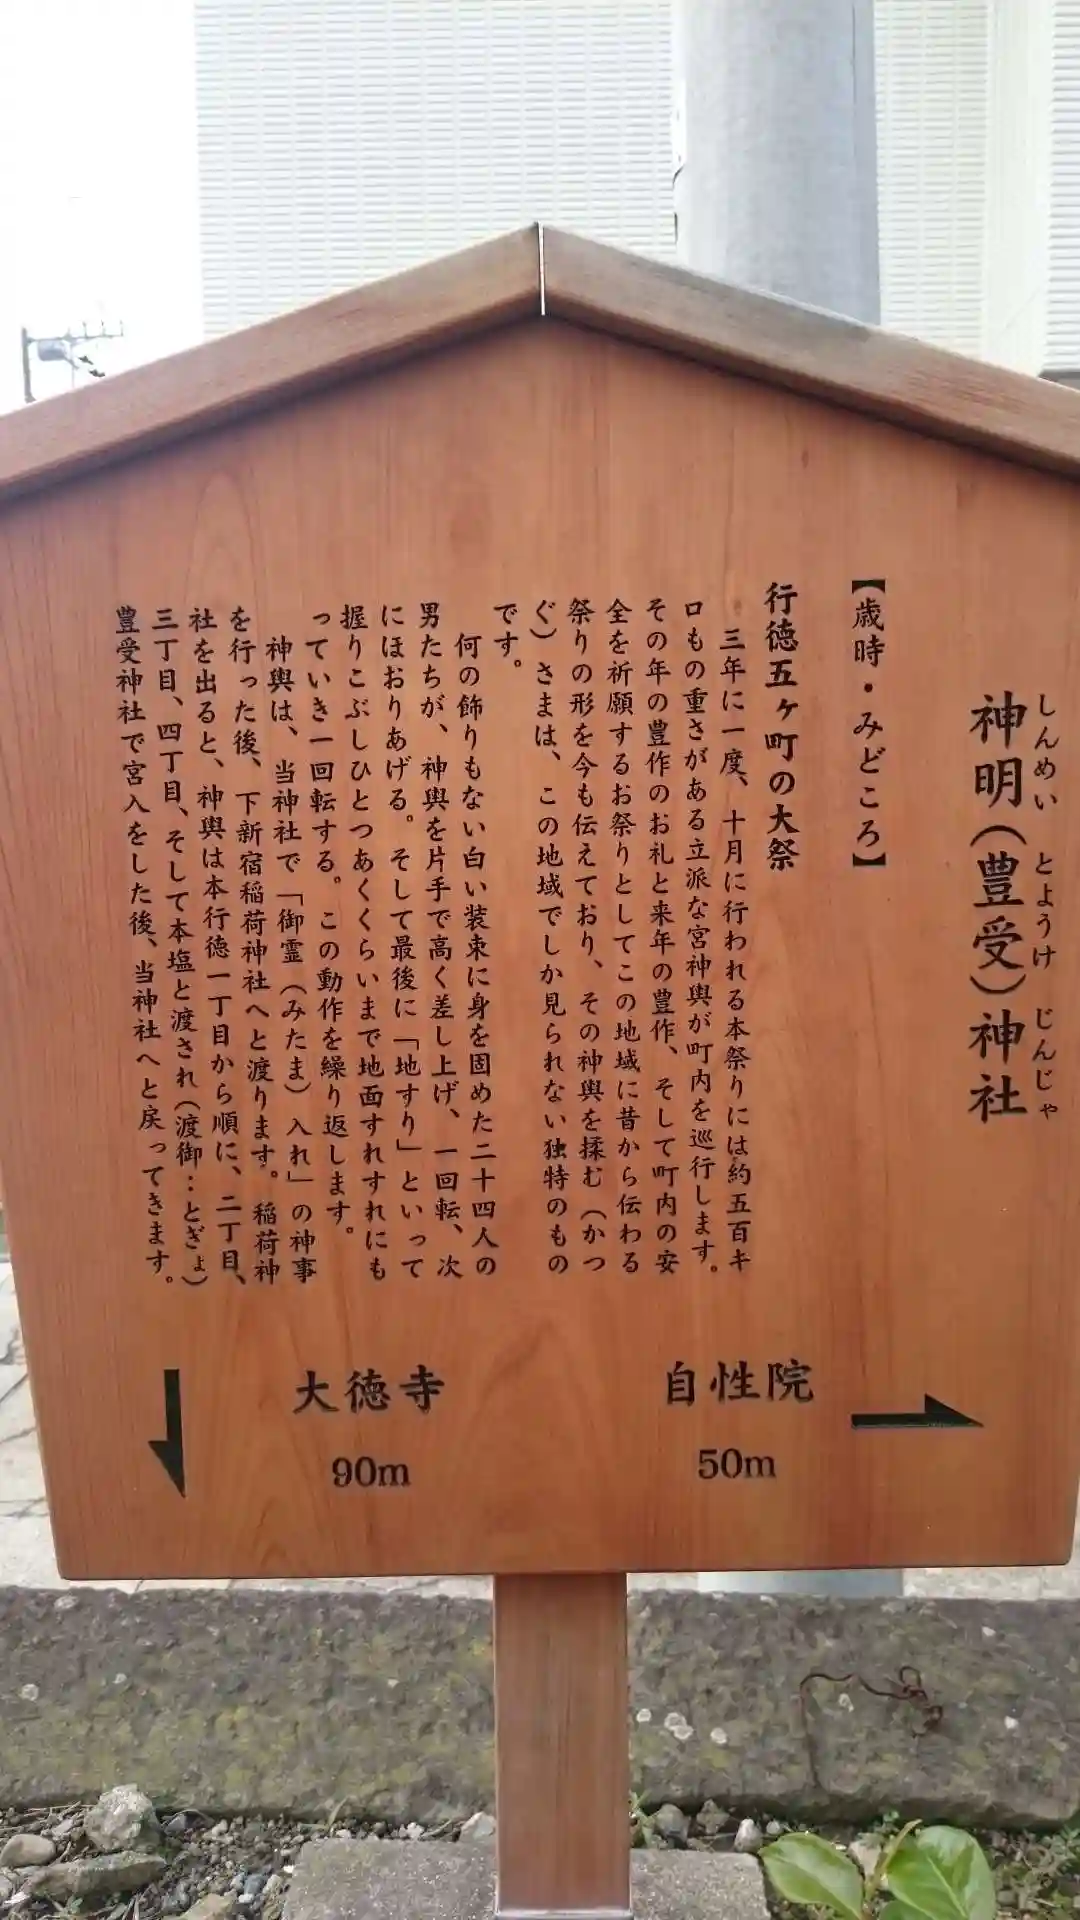 しんめい とようけ じんじゃ
神明(豊受)神社
【歳時・みどころ】
行徳五ヶ町の大祭
三年に一度、十月に行われる本祭りには約五百キ
ロもの重さがある立派な宮神輿が町内を巡行します。
その年の豊作のお礼と来年の豊作、そして町内の安
全を祈願するお祭りとしてこの地域に昔から伝わる
祭りの形を今も伝えており、その神輿を揉む(かつ
ぐ)さまは、この地域でしか見られない独特のもの
です。
何の飾りもない白い装束に身を固めた二十四人の
男たちが、神輿を片手で高く差し上げ、一回転、次
にほおりあげる。そして最後に「地すり」といって
握りこぶしひとつあくくらいまで地面すれすれにも
っていき一回転する。この動作を繰り返します。
神輿は、当神社で「御霊(みたま)入れ」の神事
を行った後、下新宿稲荷神社へと渡ります。稲荷神
社を出ると、神輿は本行徳一丁目から順に、二丁目、
三丁目、四丁目、そして本塩と渡され(渡御…とぎょ)
豊受神社で宮入をした後、当神社へと戻ってきます。
自性院
50m
大徳寺
90m